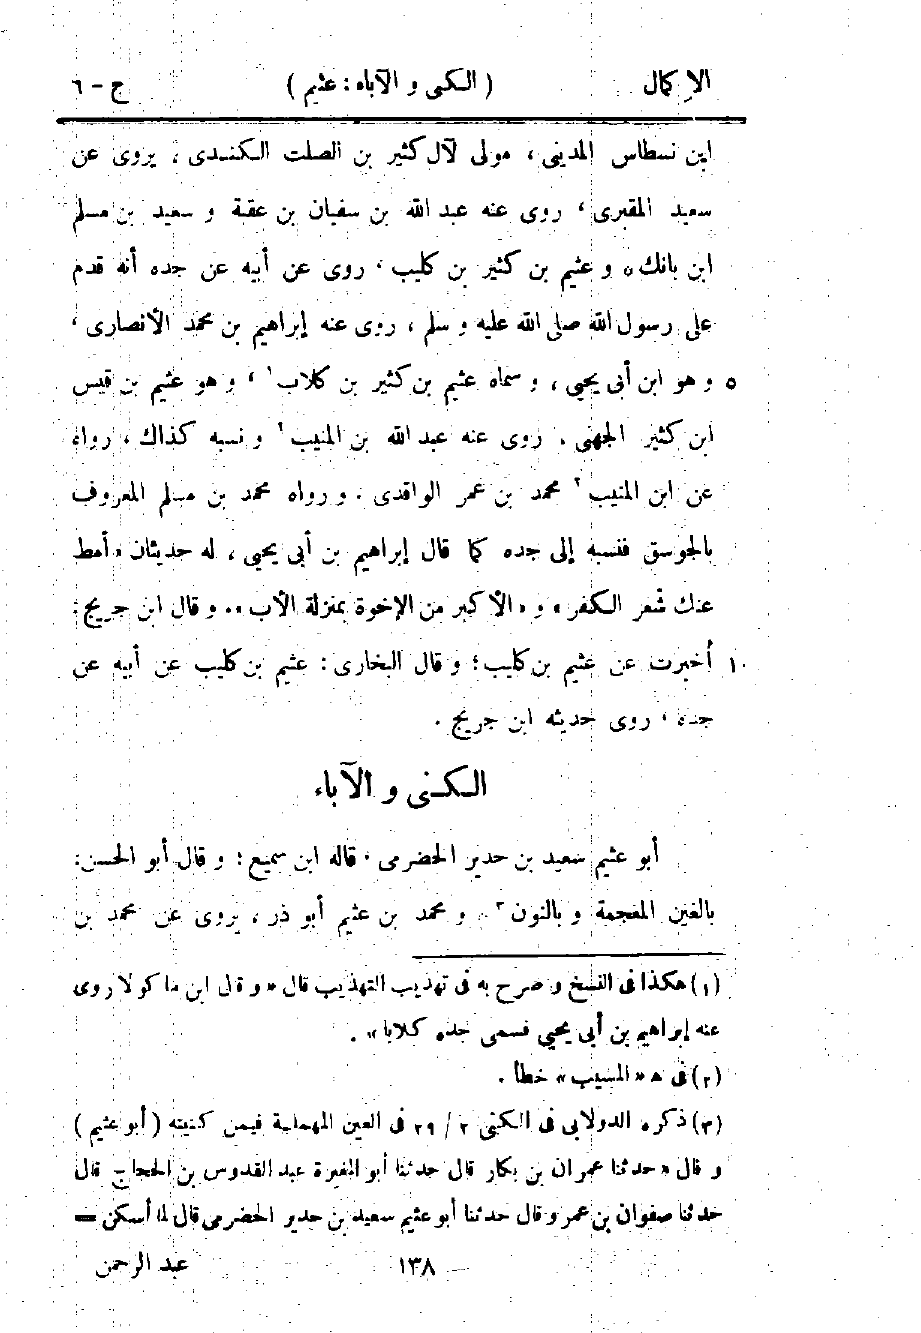 الإكمال ( الكنى و الآباء : عثيم ) ج - ٦
ابن نسطاس المديني ، مولى لآل كثير بن الصلت الكندى ، يروى عن
سعيد المقبرى ، روى عنه عبد الله بن سفيان بن عقبة و سعيد بن مسلم
ابن بانك ه و عثيم بن كثير بن كليب ، روى عن أبيه عن جده أنه قدم
على رسول الله صلى الله عليه و سلم ، روى عنه إبراهيم بن محمد الأنصارى ،
٥ و هو ابن أبى يحيى ، و سماه عثيم بن كثير بن كلاب ١ ، و هو عثيم بن قيس
ابن كثير الجهنى . روى عنه عبد الله بن المنيب ٢ و نسبه كذاك ، رواه
عن ابن المنيب ٢ محمد بن عمر الواقدى . و رواه محمد بن مسلم المعروف
بالجوسق فنسبه إلى جده كما قال إبراهيم بن أبى يحيى ، له حديثان « أمط
عنك شعر الكفر » و « الأكبر من الإخوة بمنزلة الأب » . و قال ابن جريج :
١٠ أخبرت عن عثيم بن كليب ؛ و قال البخارى : عثيم بن كليب عن أبيه عن
جده ، روى حديثه ابن جريج .
الكنى و الآباء
أبو عثيم سعيد بن حدير الحضرمى . قاله ابن سميع ؛ و قال أبو الحسن :
بالغين المعجمة و بالنون ٣ . و محمد بن عثيم أبو ذر ، يروى عن محمد بن
(١) هكذا فى النسخ و صرح به فى تهذيب التهذيب قال « و قال ابن ماكولا روى
عنه إبراهيم بن أبى يحيى فسمى جده كلابا » .
(٢) فى ه « المسيب » خطأ .
(٣) ذكره الدولابى فى الكنى ٢ / ٢٩ فى العين المهملة فيمن كنيته ( أبو عثيم )
و قال « حدثنا عمران بن بكار قال حدثنا أبو المغيرة عبد القدوس بن الحجاج قال
حدثنا صفوان بن عمرو قال حدثنا أبو عثيم سعيد بن حدير الحضرمى قال لما أسكن =
١٣٨ عبد الرحمن